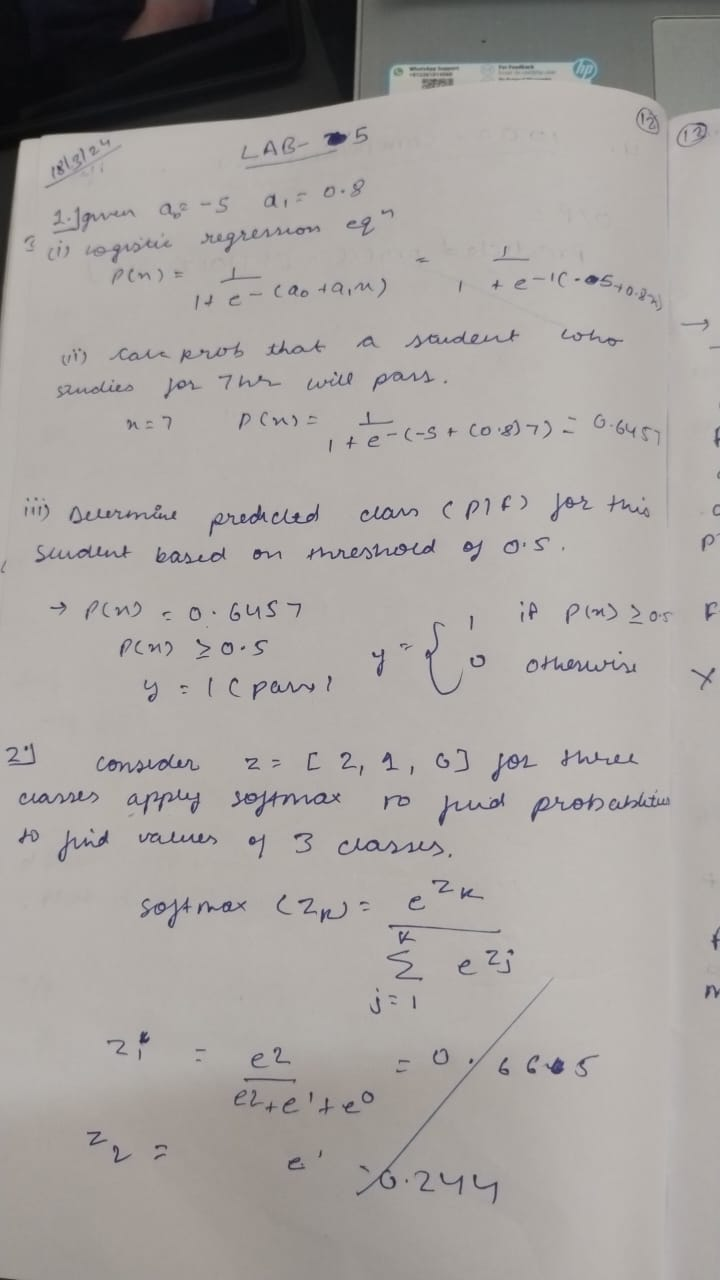 WhatsApp Support
For Feedback
hp
12
13
18/3/24
LAB- 5
1.] given a₀ = -5 a₁ = 0.8
(i) logistic regression eqⁿ
P(x) = 1 / 1 + e^-(a₀ + a₁x) = 1 / 1 + e^-1(-5+0.8x)
(ii) Calc prob that a student who
studies for 7 hr will pass.
x = 7 P(x) = 1 / 1 + e^-(-5 + (0.8)7) = 0.6457
iii) Determine predicted class (P/F) for this
student based on threshold of 0.5.
→ P(x) = 0.6457
P(x) ≥ 0.5
y = 1 (pass)
y = { 1 if P(x) ≥ 0.5
0 otherwise
2.] consider z = [2, 1, 0] for three
classes apply softmax to find probabilities
to find values of 3 classes.
softmax (zₖ) = e^zₖ / Σ_{j=1}^{K} e^zⱼ
z₁ = e² / e² + e¹ + e⁰ = 0.665
z₂ = e¹ 0.244